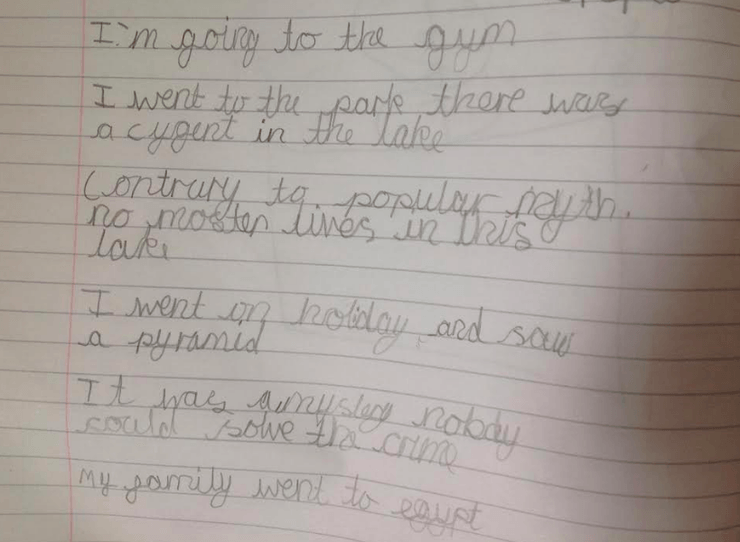 I'm going to the gym
I went to the park there was
a cygent in the lake
Contrary to popular myth.
no moster lives in this
lake
I went on holiday and saw
a pyramid
It was a mystery nobody
could solve the crime
My family went to egypt